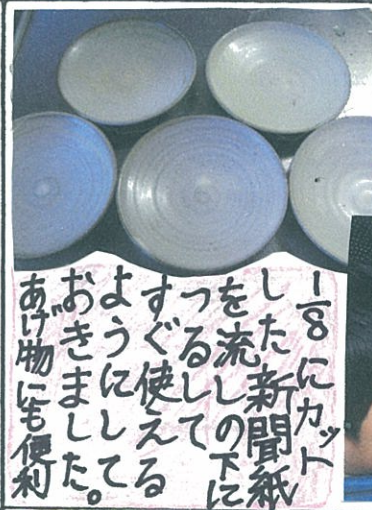 1/8にカット
した新聞紙
を流しの下に
つるして
すぐ使える
ようにして
おきました。
あげ物にも便利